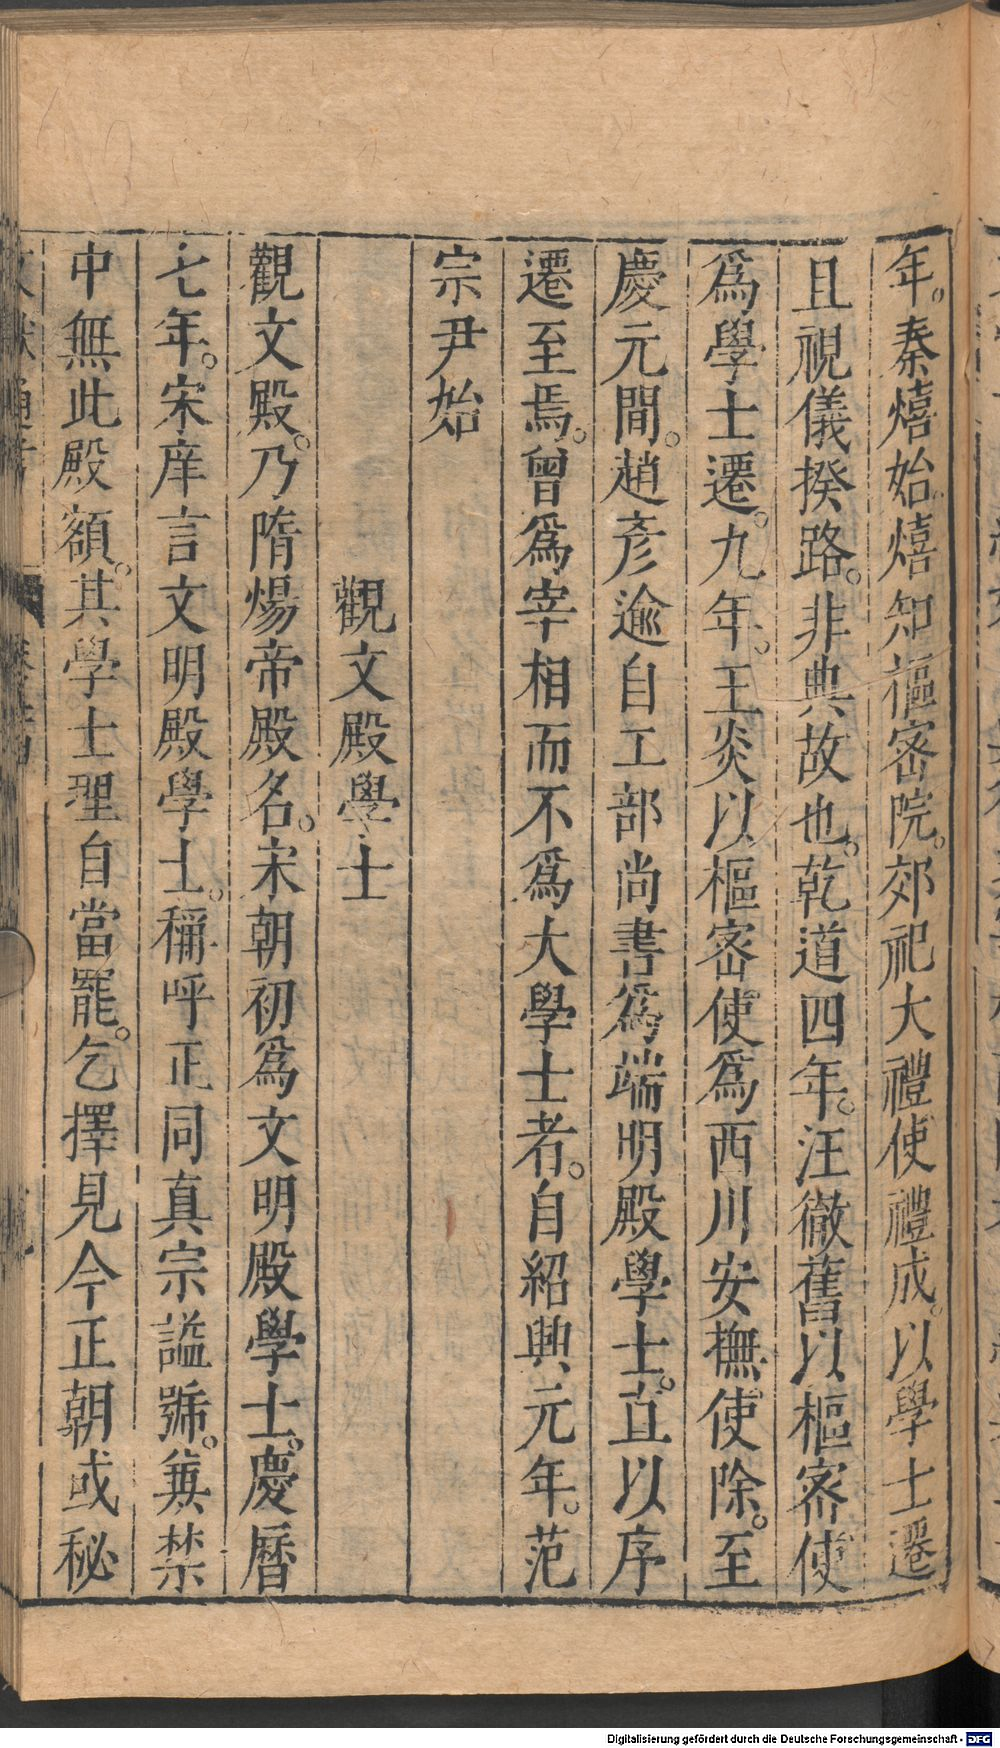 年。秦熺始。熺知樞密院。郊祀大禮使。禮成。以學士遷
且視儀揆路。非典故也。乾道四年。汪徹舊以樞密使
爲學士遷。九年。王炎以樞密使爲西川安撫使除。至
慶元間。趙彥逾自工部尚書爲端明殿學士。直以序
遷至焉。曾爲宰相而不爲大學士者。自紹興元年。范
宗尹始
觀文殿學士
觀文殿。乃隋煬帝殿名。宋朝初爲文明殿學士。慶曆
七年。宋庠言文明殿學士。稱呼正同真宗謚號。兼禁
中無此殿額。其學士理自當罷。乞擇見今正朝或秘
Digitalisierung gefördert durch die Deutsche Forschungsgemeinschaft - DFG